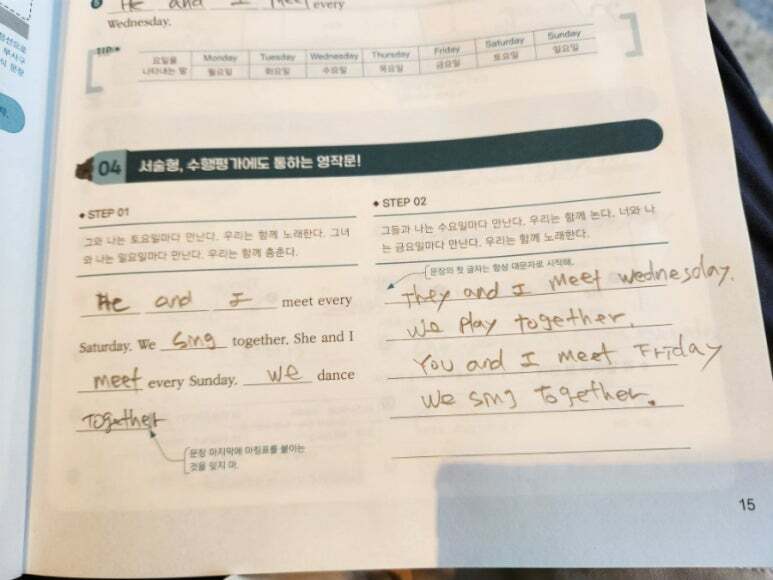 He and I meet every
Wednesday.
TIP
요일을 나타내는 말 Monday Tuesday Wednesday Thursday Friday Saturday Sunday
월요일 화요일 수요일 목요일 금요일 토요일 일요일
04 서술형, 수행평가에도 통하는 영작문!
STEP 01
그와 나는 토요일마다 만난다. 우리는 함께 노래한다. 그녀
와 나는 일요일마다 만난다. 우리는 함께 춤춘다.
He and I meet every
Saturday. We sing together. She and I
meet every Sunday. we dance
Together
문장 마지막에 마침표를 붙이는
것을 잊지 마.
STEP 02
그들과 나는 수요일마다 만난다. 우리는 함께 논다. 너와 나
는 금요일마다 만난다. 우리는 함께 노래한다.
문장의 첫 글자는 항상 대문자로 시작해.
They and I meet wednesday.
We Play together.
You and I meet Friday
We sing together.
15